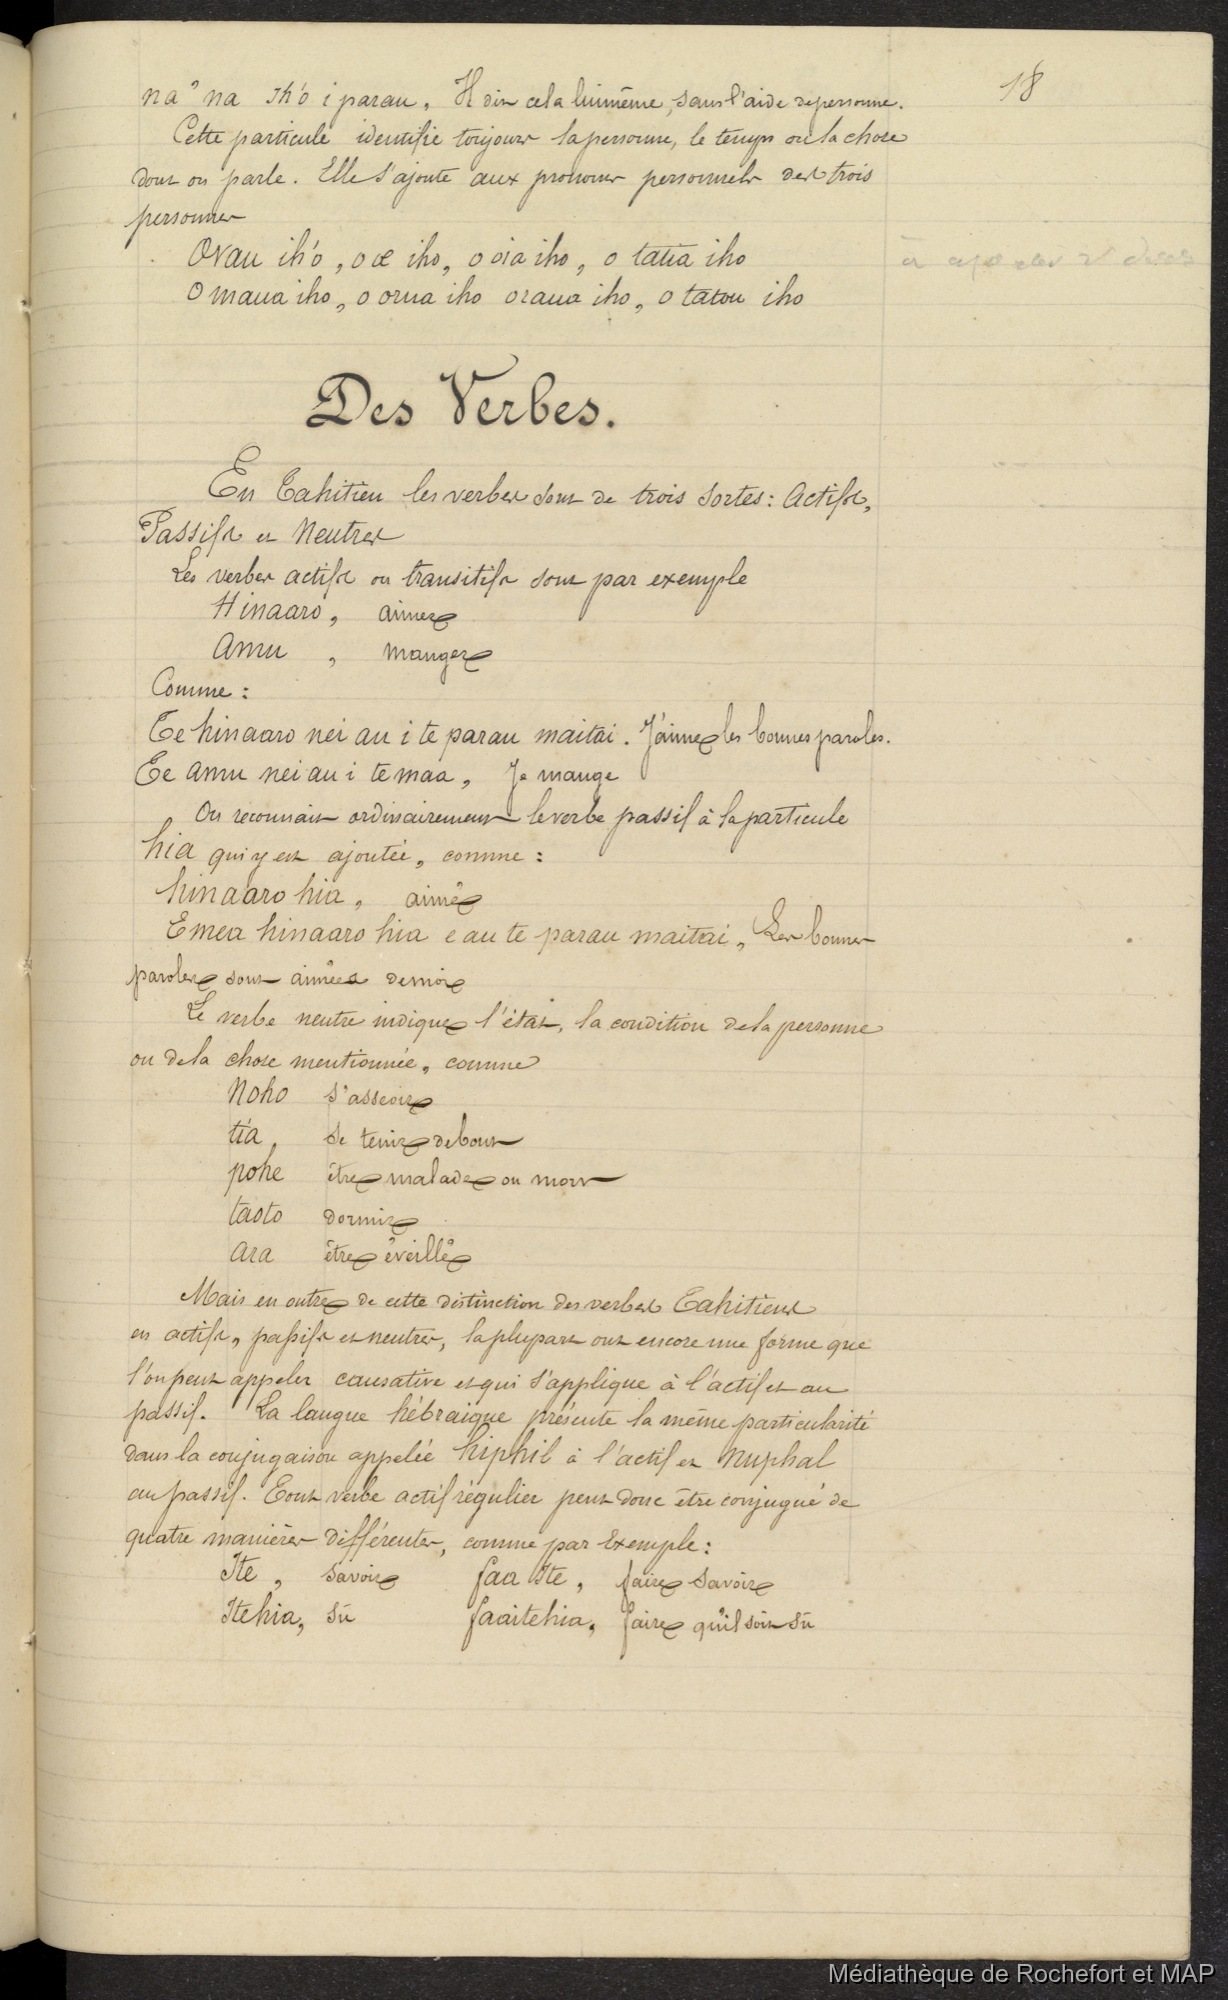 18
na°na iho i parau, Il dit cela luimême, sans l'aide de personne.
Cette particule identifie toujours la personne, le temps ou la chose
dont on parle. Elle s'ajoute aux pronoms personnels des trois
personnes
Ovau iho, o oe iho, o oia iho, o taua iho
O maua iho, o orua iho oraua iho, o tatou iho
Des Verbes.
En Tahitien les verbes sont de trois sortes: Actifs,
Passifs et Neutres
Les verbes actifs ou transitifs sont par exemple
Hinaaro, aimer
Amu, manger
Comme:
Te hinaaro nei au i te parau maitai. J'aime les bonnes paroles.
Te amu nei au i te maa, Je mange
On reconnait ordinairement le verbe passif à la particule
hia qui y est ajoutée, comme:
hinaaro hia, aimé
E mea hinaaro hia e au te parau maitai, Les bonnes
paroles sont aimées de moi
Le verbe neutre indique l'état, la condition de la personne
ou de la chose mentionnée, comme
Noho s'asseoir
tia, se tenir debout
pohe être malade ou mort
taoto dormir
ara être éveillé
Mais en outre de cette distinction des verbes Tahitiens
en actifs, passifs et neutres, la plupart ont encore une forme que
l'on peut appeler causative et qui s'applique à l'actif et au
passif. La langue hébraique présente la même particularité
dans la conjugaison appelée hiphil à l'actif et Nuphal
au passif. Tout verbe actif régulier peut donc être conjugué de
quatre manières différentes, comme par Exemple:
Ite, savoir faa Ite, faire savoir
Itehia, sû faaitehia, faire qu'il soit sû
Médiathèque de Rochefort et MAP